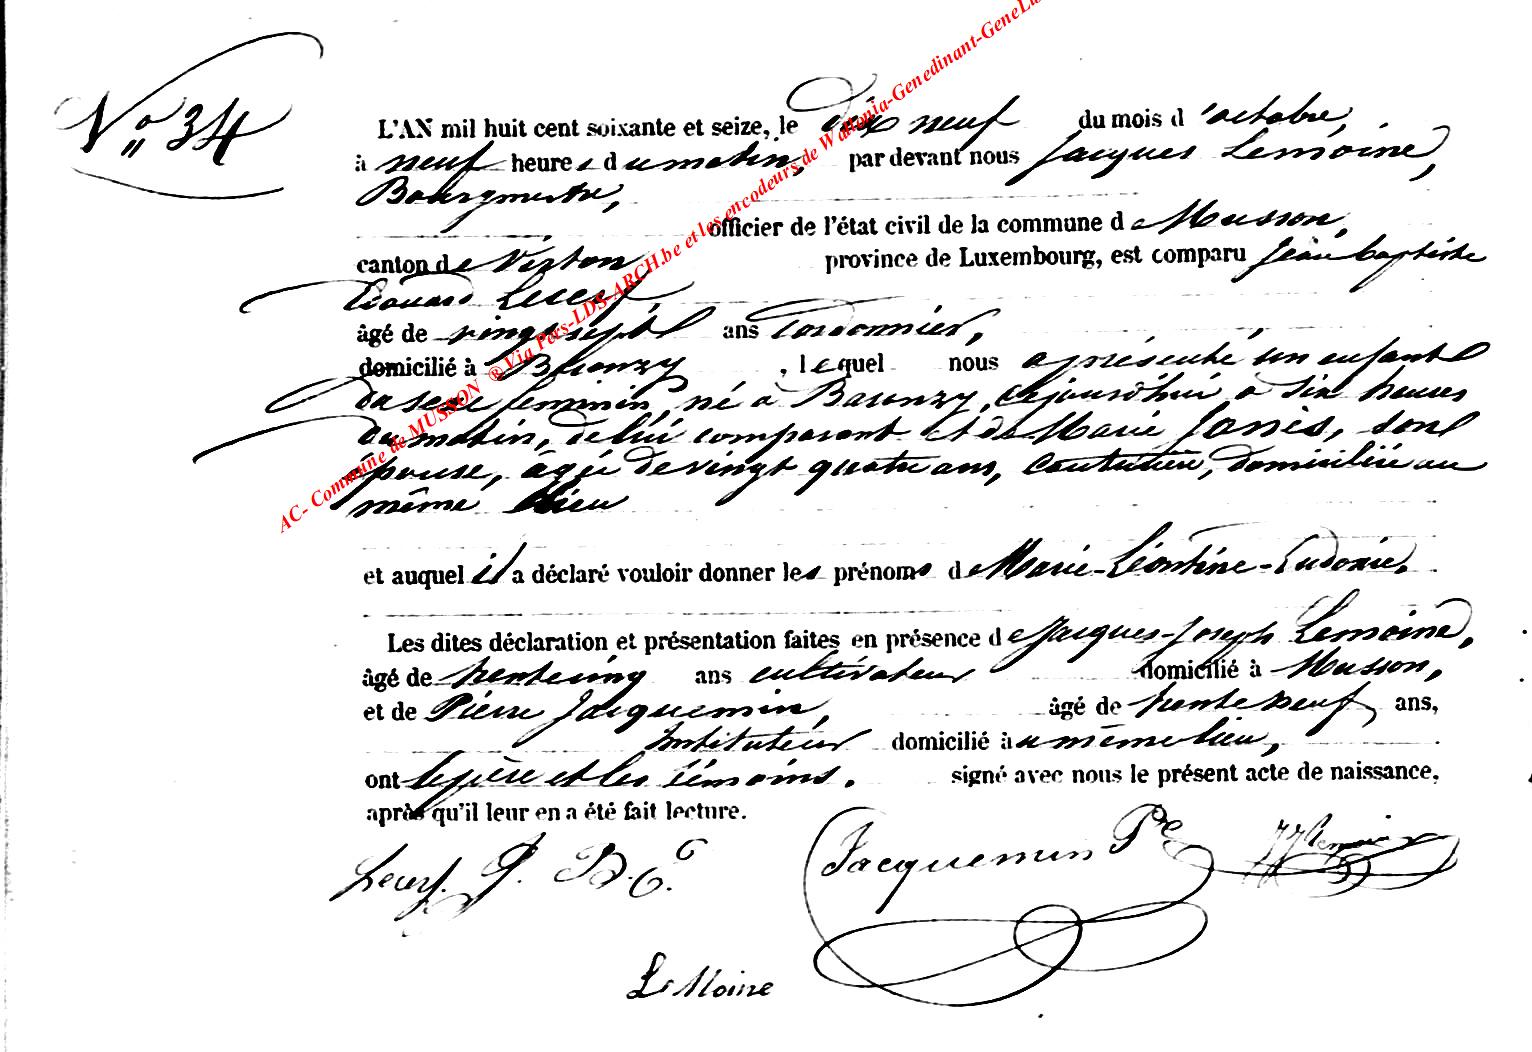 N° 34
L'AN mil huit cent soixante et seize, le dix neuf du mois d'octobre,
à neuf heures du matin, par devant nous Jacques Lemoine,
Bourgmestre,
officier de l'état civil de la commune de Musson,
canton de Virton province de Luxembourg, est comparu Jean baptiste
Edouard Lecerf,
âgé de vingt sept ans cordonnier,
domicilié à Baronzy, lequel nous a présenté un enfant
du sexe féminin, né à Baronzy, cejourd'hui à six heures
du matin, de lui comparant et de Marie Janis, son
épouse, âgée de vingt quatre ans, couturière, domiciliée au
même lieu
et auquel il a déclaré vouloir donner les prénoms de Marie-Léontine-Eudoxie.
Les dites déclaration et présentation faites en présence de Jacques-Joseph Lemoine,
âgé de trente cinq ans cultivateur domicilié à Musson,
et de Pierre Jacquemin, âgé de trente neuf ans,
Instituteur domicilié au même lieu,
ont le père et les témoins. signé avec nous le présent acte de naissance,
après qu'il leur en a été fait lecture.
Lecerf. J. B. E. Jacquemin Pre JJ Lemoine
LeMoine
AC- Commune de MUSSON ® Via Pers-LDS-ARCH.be et les encodeurs de Wallonia-Genedinant-GeneLu